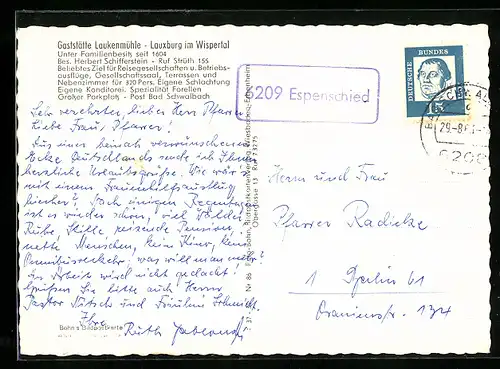 Gaststätte Laukenmühle - Lauxburg im Wispertal
Unter Familienbesitz seit 1604
Bes. Herbert Schifferstein - Ruf Strüth 155
Beliebtes Ziel für Reisegesellschaften u. Betriebs-
ausflüge, Gesellschaftssaal, Terrassen und
Nebenzimmer für 320 Pers. Eigene Schlachtung
Eigene Konditorei. Spezialität Forellen
Großer Parkplatz - Post Bad Schwalbach
6209 Espenschied
DEUTSCHE BUNDES
15
29-8.6
Sehr verehrter, lieber Herr Pfarrer
Liebe Frau Pfarrer!
Aus einer beinah verwunschenen
Ecke Deutschlands sende ich Ihnen
herzliche Urlaubsgrüße. Wie wär's
mit einem Frauenhilfsausflug
hierher? Nach einigen Regentagen
ist es wieder schön, viel Wälder
Ruhe Stille, reizende Pension,
nette Menschen, kein Kino, kein
Omnibusverkehr, was will man mehr?
An Arbeit wird nicht gedacht!
Grüßen Sie bitte auch Herrn
Pastor und Fräulein Schmidt.
Ihre Ruth
Herrn und Frau
Pfarrer Radicke
1 Berlin 61
Oranienstr. 134